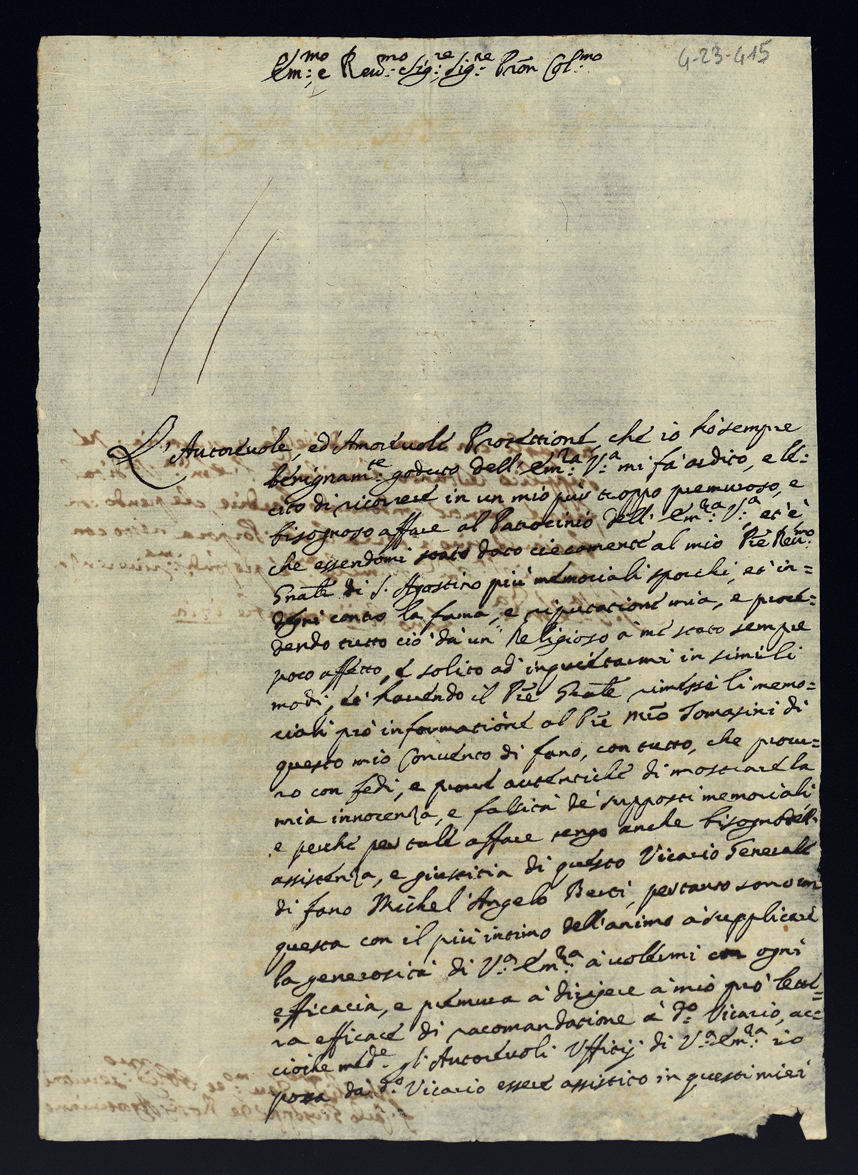 Em:mo e Rev:mo Sig:re Sig:re Pron Col:mo
4-23-415
L'Autorevole, ed'Amorevole Protettione, che io hò sempre
benignam:te goduto dell'Em:za V:a mi fà ardito, e le-
cito di ricorrere in un mio più troppo premuroso, e
bisognoso affare al Patrocinio dell'Em:za V:a et'è
che essendomi stato dato ciecamente al mio Pre Rev:mo
Gnāle di S. Agostino più memoriali sporchi, et in=
degni contro la fama, e riputatione mia, e proce=
dendo tutto ciò da un' Religioso à me stato sempre
poco affetto, è solito ad inquietarmi in simili
modi, et havendo il Pre Gnāle rimesse li memo=
riali prò informatione al Pre Mro Tomasini di
questo mio Convento di fano, con tutto, che procu=
ro con fedi, e prove autentiche di mostrare la
mia innocenza, e falsità de' supposti memoriali
e perche per tale affare tengo anche bisogno dell'
assistenza, e giustitia di questo Vicario Generale
di fano Michel'Angelo Berti, pertanto sono con
questa con il più intimo dell'animo à supplicare
la generosità di V:a Em:za à volermi con ogni
efficacia, e premura à dirigere à mio prò lette=
ra efficace di racomandatione à d:o Vicario, ac=
cioche med:e gl'Autorevoli Ufficij di V:a Em:za io
possa da d:o Vicario essere assistito in questi miei